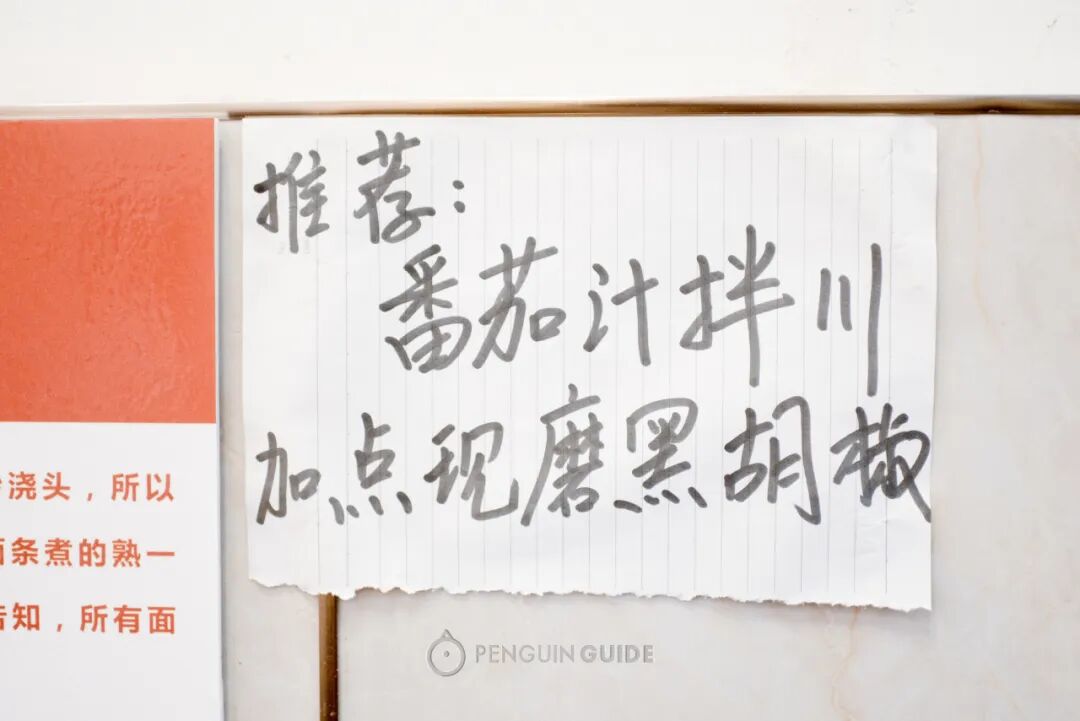 推荐：
番茄汁拌川
加点现磨黑胡椒
浇头，所以
条煮的熟一
告知，所有面
PENGUIN GUIDE